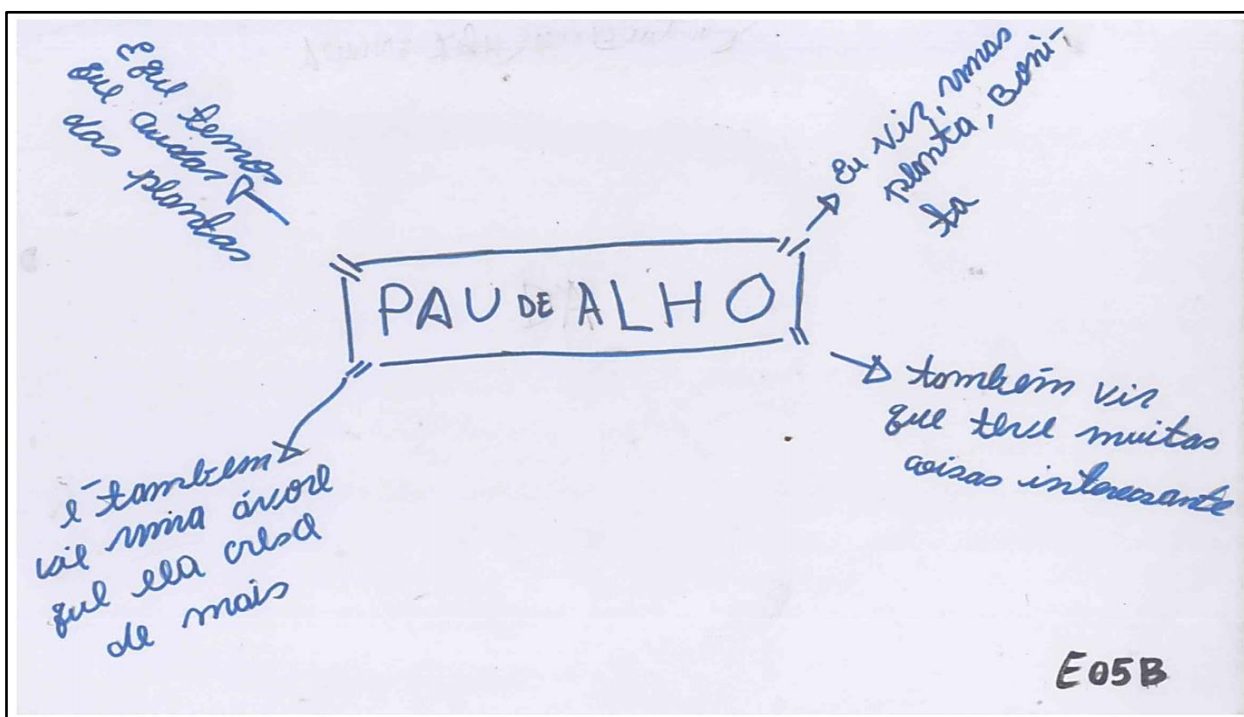 E que temos
que cuidas
das plantas
Eu viz, umas
planta, Boni-
ta
PAU DE ALHO
também viz
que teve muitas
coisas interesante
é também
uma árvore
que ela cresce
de mais
E05B